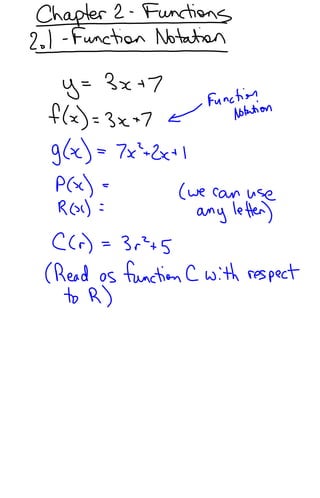 Chapter 2 - Functions
2.1 - Function Notation
y = 3x+7
f(x) = 3x+7 Function Notation
g(x) = 7x²+2x+1
P(x) =
R(x) = (we can use any letter)
C(r) = 3r²+5
(Read as function C with respect
to R)